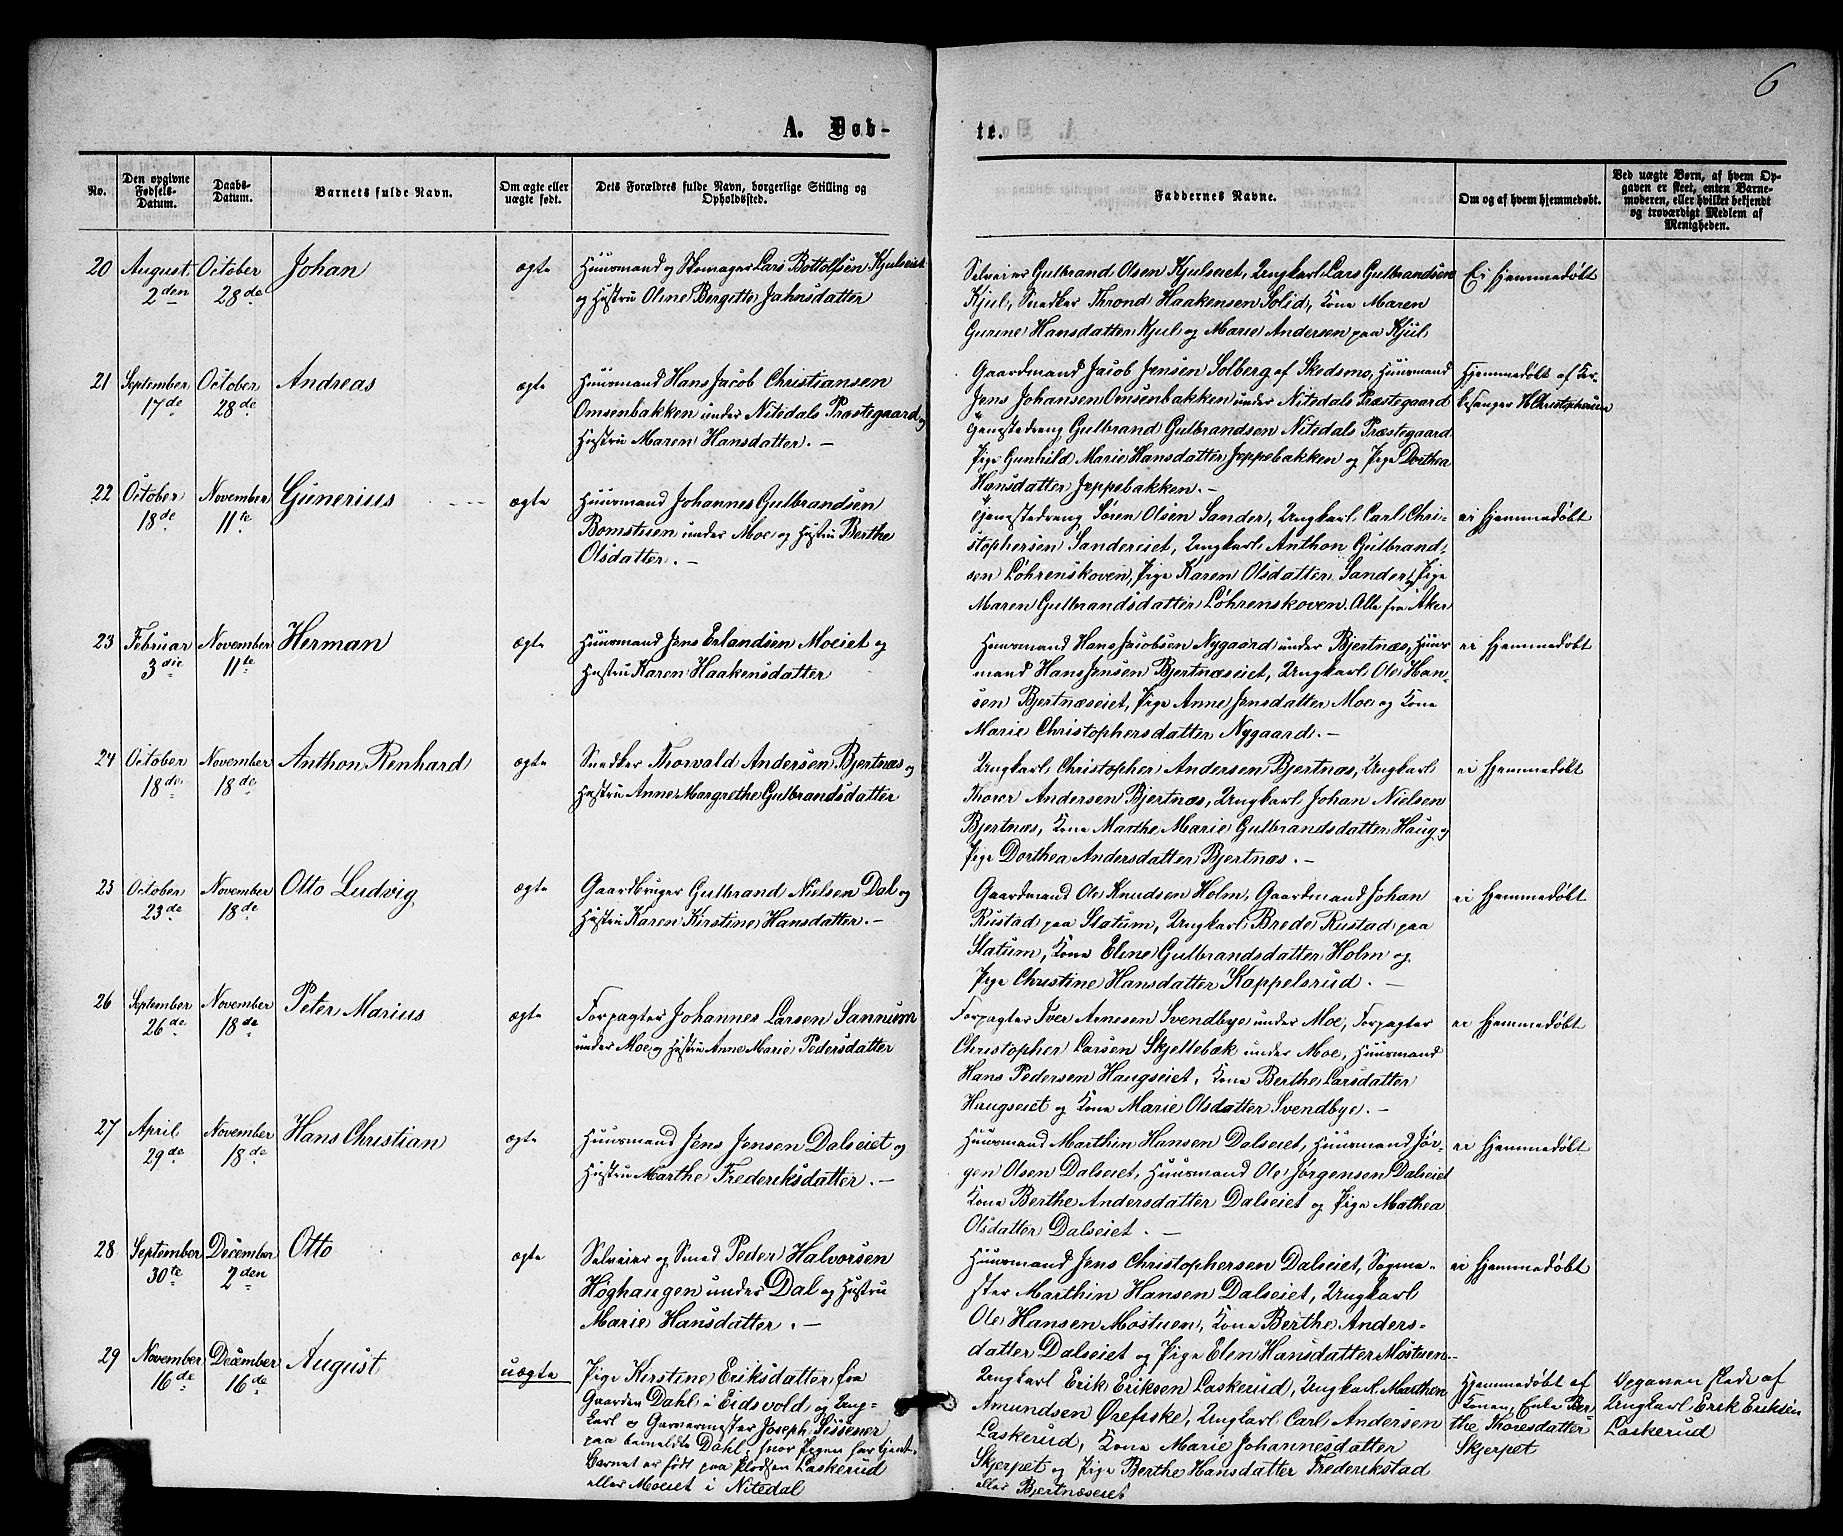 6
A. Døb-
te.
No.
Den opgivne Fødsels-Datum.
Daabs-Datum.
Barnets fulde Navn.
Om ægte eller uægte født.
Dets Forældres fulde Navn, borgerlige Stilling og Opholdssted.
Faddernes Navne.
Om og af hvem hjemmedøbt.
Ved uægte Børn, af hvem Opgaven er skeet, enten Barnemoderen, eller hvilket bekjendt og troværdigt Medlem af Menigheden.
20
August 2den
October 28de
Johan
ægte
Huusmand og Skomager Lars Bottolfsen Kjulseiet
og Hustru Oline Bergette Jahnsdatter
Selveier Gulbrand Olsen Kjulseiet, Ungkarl Lars Gulbrandsen
Kjul, Snedker Thrond Haakensen Solid, Kone Maren
Gurine Hansdatter Kjul og Marie Andersen paa Kjul
Ei hjemmedøbt
21
September 17de
October 28de
Andreas
ægte
Huusmand Hans Jacob Christiansen
Omsenbakken under Nitedals Præstegaard og
Hustru Maren Hansdatter. —
Gaardmand Jacob Jensen Solberg af Skedsmo, Huusmand
Jens Johansen Omsenbakken under Nitedals Præstegaard
Tjenestedreng Gulbrand Gulbrandsen Nitedals Præstegaard
Pige Gunhild Marie Hansdatter Jeppebakken og Pige Dorthea
Hansdatter Jeppebakken. —
Hjemmedøbt af Kir-
kesanger H Christophersen
22
October 18de
November 11te
Gunerius
ægte
Huusmand Johannes Gulbrandsen
Bomstuen under Moe og Hustru Berthe
Olsdatter. —
Tjenestedreng Søren Olsen Sander, Ungkarl Carl Chri-
stophersen Sandereiet, Ungkarl Anthon Gulbrand-
sen Løhrenskoven, Pige Karen Olsdatter Sander, Pige
Maren Gulbrandsdatter Løhrenskoven. Alle fra Aker
ei hjemmedøbt
23
Februar 3die
November 11te
Herman
ægte
Huusmand Jens Erlandsen Moeiet og
Hustru Karen Haakensdatter
Huusmand Hans Jacobsen Nygaard under Bjertnæs, Huus
mand Hans Jensen Bjertnæseiet, Ungkarl Ole Han-
sen Bjertnæseiet, Pige Anne Jensdatter Moe og Kone
Marie Christophersdatter Nygaard. —
ei hjemmedøbt
24
October 18de
November 18de
Anthon Renhard
ægte
Snedker Thorvald Andersen Bjertnæs og
Hustru Anne Margrethe Gulbrandsdatter
Ungkarl Christopher Andersen Bjertnæs, Ungkarl
Thorer Andersen Bjertnæs, Ungkarl Johan Nielsen
Bjertnæs, Kone Marthe Marie Gulbrandsdatter Haug og
Pige Dorthea Andersdatter Bjertnæs. —
ei hjemmedøbt
25
October 23de
November 18de
Otto Ludvig
ægte
Gaardbruger Gulbrand Nielsen Dal og
Hustru Karen Kirstine Hansdatter. —
Gaardmand Ole Knudsen Holm, Gaardmand Johan
Rustad paa Slatum, Ungkarl Brede Rustad paa
Slatum, Kone Eline Gulbrandsdatter Holm og
Pige Christine Hansdatter Kappelsrud. —
ei hjemmedøbt
26
September 26de
November 18de
Peter Marius
ægte
Forpagter Johannes Larsen Sannum
under Moe og Hustru Anne Marie Pedersdatter
Forpagter Iver Arnesen Svendbye under Moe, Forpagter
Christopher Larsen Skjellebæk under Moe, Huusmand
Hans Pedersen Haugseiet, Kone Berthe Larsdatter
Haugseiet og Kone Marie Olsdatter Svendbye. —
ei hjemmedøbt
27
April 29de
November 18de
Hans Christian
ægte
Huusmand Jens Jensen Dalseiet og
Hustru Marthe Frederiksdatter. —
Huusmand Marthin Hansen Dalseiet, Huusmand Jør-
gen Olsen Dalseiet, Huusmand Ole Jørgensen Dalseiet
Kone Berthe Andersdatter Dalseiet og Pige Mathea
Olsdatter Dalseiet. —
ei hjemmedøbt
28
September 30te
December 2den
Otto
ægte
Selveier og Smed Peder Halvorsen
Høghaugen under Dal og Hustru
Marie Hansdatter. —
Huusmand Jens Christophersen Dalseiet, Sagme-
ster Marthin Hansen Dalseiet, Ungkarl
Ole Hansen Mostuen, Kone Berthe Anders-
datter Dalseiet og Pige Elen Hansdatter Mostuen. —
ei hjemmedøbt
29
November 16de
December 16de
August
uægte
Pige Kirstine Eriksdatter fra
Gaarden Dahl i Eidsvold og Ung-
karl og Garvermester Joseph Sissener
paa bemeldte Dahl, hvor Pigen har tjent.
Barnet er født paa Pladsen Laskerud
eller Moeiet i Nitedal
Ungkarl Erik Eriksen Laskerud, Ungkarl Marthin
Amundsen Ørefiske, Ungkarl Carl Andersen
Laskerud, Kone Marie Johannesdatter
Skjerpet og Pige Berthe Hansdatter Frederikstad
eller Bjertnæseiet
Hjemmedøbt af
Konen, Enke Ber-
the Thoresdatter
Skjerpet
Opgaven skede af
Ungkarl Erik Eriksen
Laskerud